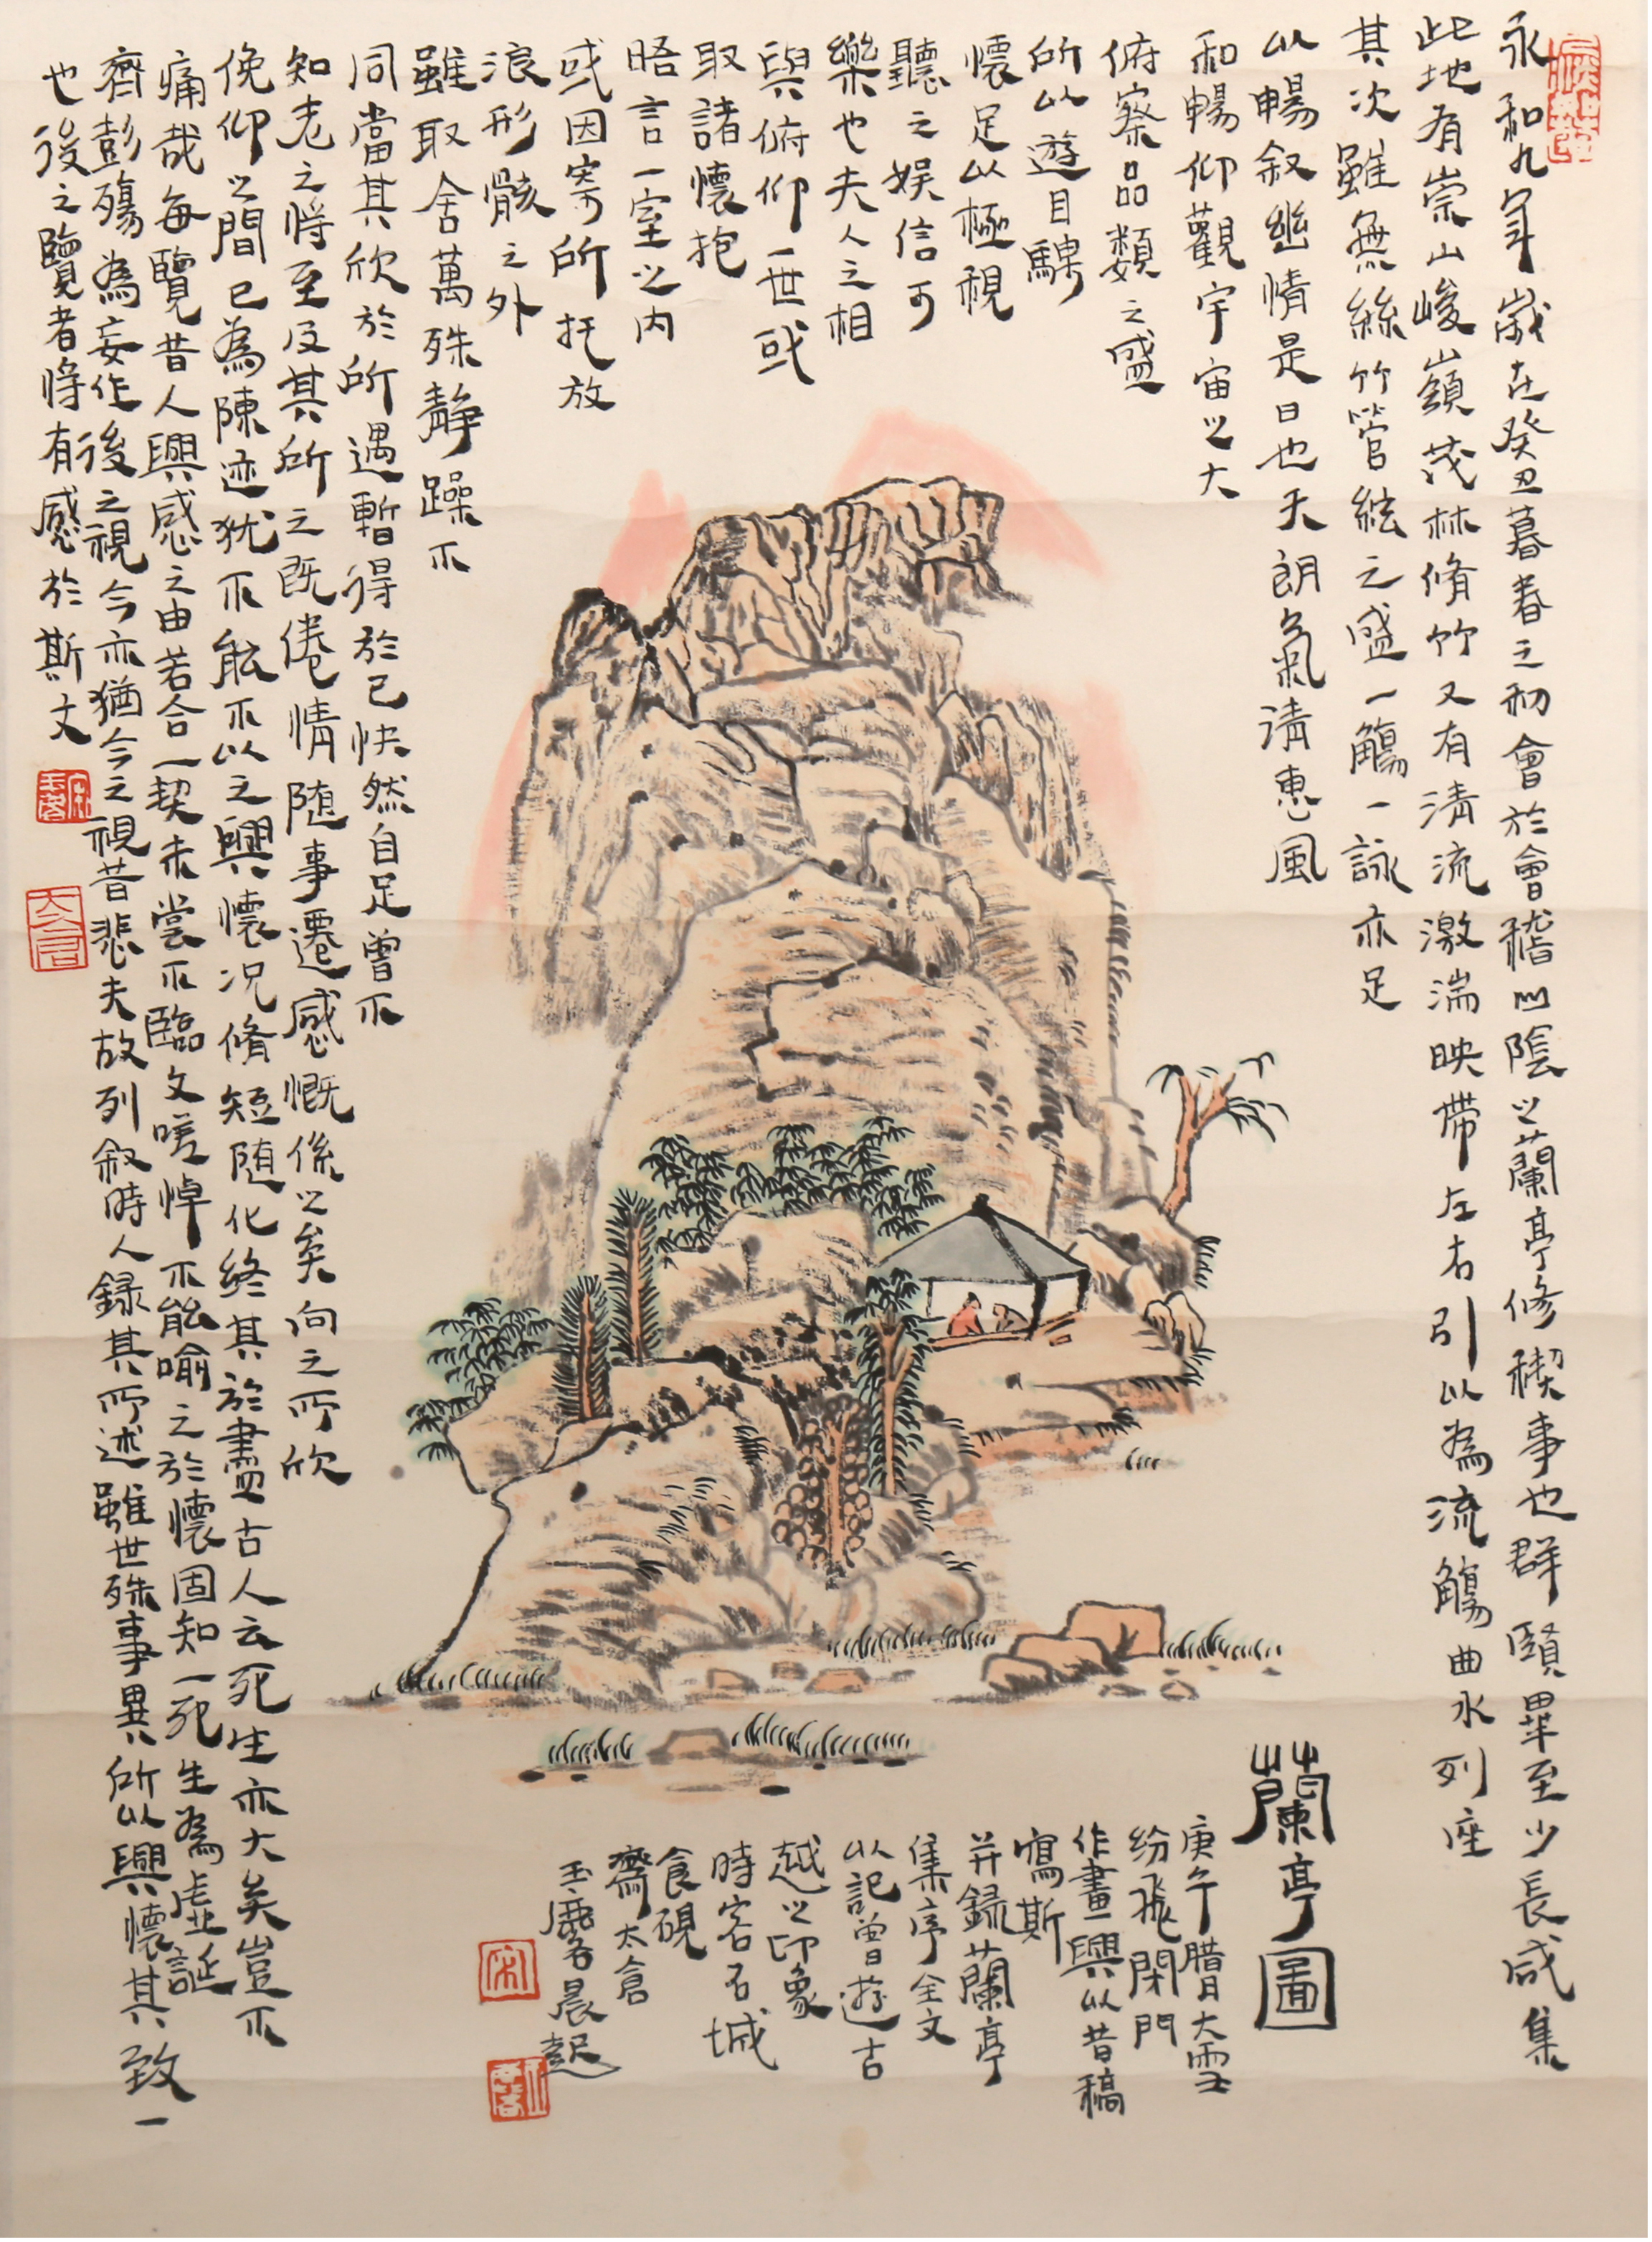 永和九年歲在癸丑暮春之初會於會稽山陰之蘭亭修稧事也群賢畢至少長咸集
此地有崇山峻嶺茂林脩竹又有清流激湍映帶左右引以為流觴曲水列座
其次雖無絲竹管絃之盛一觴一詠亦足
以暢敘幽情是日也天朗氣清惠風
和暢仰觀宇宙之大
俯察品類之盛
所以遊目騁
懷足以極視
聽之娛信可
樂也夫人之相
與俯仰一世或
取諸懷抱
晤言一室之內
或因寄所托放
浪形骸之外
雖取舍萬殊靜躁不
同當其欣於所遇暫得於己快然自足曾不
知老之將至及其所之既倦情隨事遷感慨係之矣向之所欣
俛仰之間已為陳迹犹不能不以之興懷況脩短隨化終其於盡古人云死生亦大矣豈不
痛哉每覽昔人興感之由若合一契未嘗不臨文嗟悼不能喻之於懷固知一死生為虛誕
齊彭殤為妄作後之視今亦猶今之視昔悲夫故列敘時人錄其所述雖世殊事異所以興懷其致一
也後之覽者將有感於斯文
蘭亭圖
庚午腊月大雪
纷飛閉門
作畫興以昔稿
寫斯
并録蘭亭
集序全文
以記曾遊古
越之印象
時客石城
食硯
齋太倉
玉麐晨起
宋